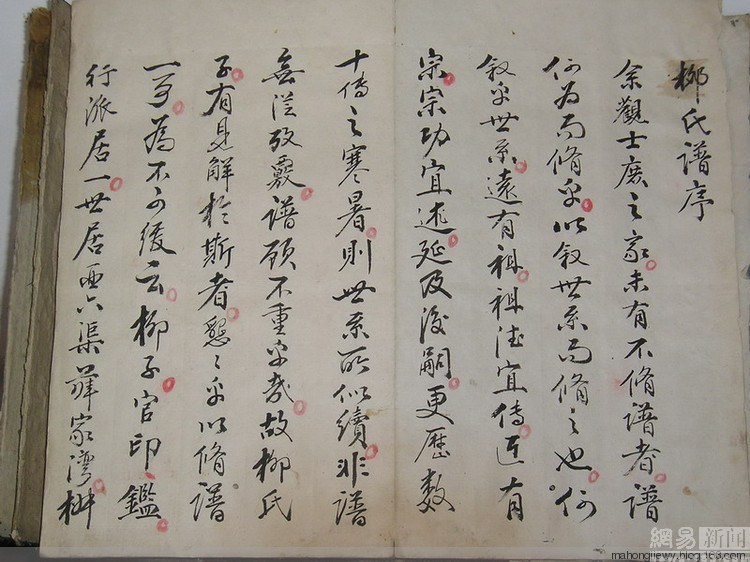 柳氏譜序
余觀士庶之家未有不脩譜者譜
何為而脩乎以叙世系而脩之也何
叙乎世系遠有祖祖德宜傳近有
宗宗功宜述延及後嗣更歷數
十傳之寒暑則世系所似續非譜
無從攷覈譜顧不重乎哉故柳氏
子有見解於斯者懇〻乎以脩譜
一事為不可緩云柳子官印鑑
行派居一世居六渠薛家灣
網易 新闻
mahongjiewy.blog.163.com